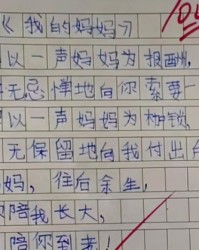 《我的妈妈》
以一声妈妈为报酬,
无忌惮地向你索要一
以一声妈妈为枷锁
无保留地向我付出
妈,往后余生,
陪我长大,
陪你到老!